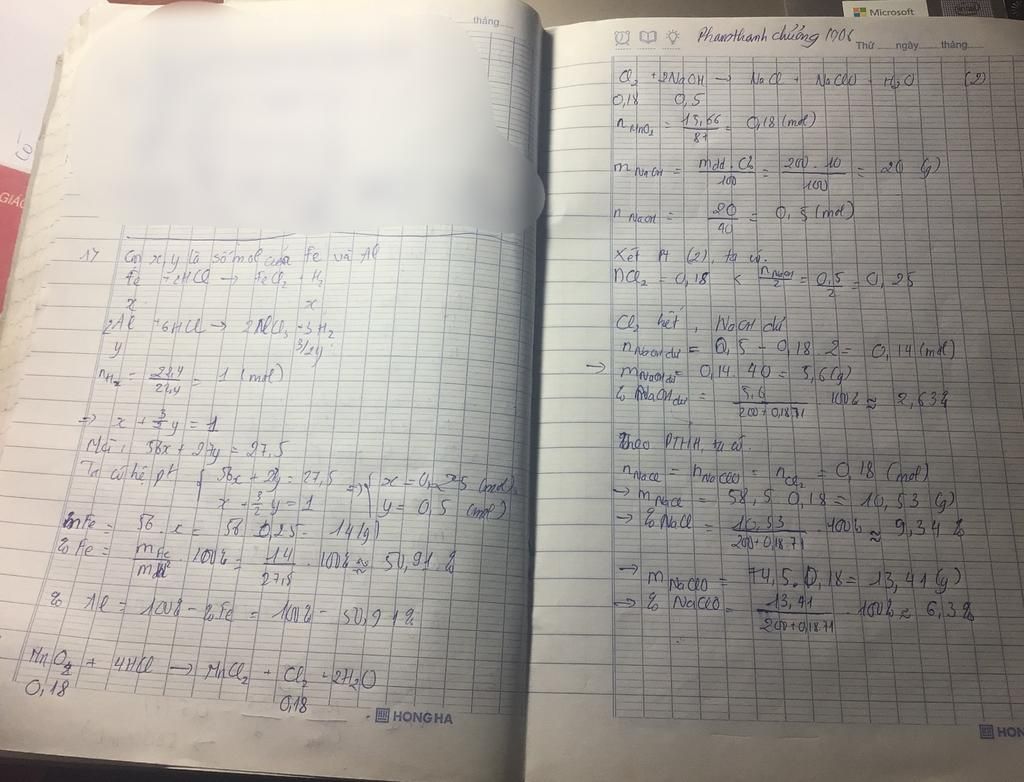 tháng
17 Gọi x y là số mol của Fe và Al
Fe + 2HCl → FeCl2 + H2
x x
2Al + 6HCl → 2AlCl3 + 3H2
y 3/2y
nH2 = 22,4/22,4 = 1 (mol)
⇒ x + 3/2 y = 1
Mà: 56x + 27y = 27,5
Ta có hệ pt { 56x + 27y = 27,5 ⇒ { x = 0,25 (mol)
x + 3/2 y = 1 y = 0,5 (mol)
mFe = 56 . x = 56 . 0,25 = 14 (g)
% Fe = mFe/mhh . 100% = 14/27,5 . 100% ≈ 50,91 %
% Al = 100% - %Fe = 100% - 50,91%
MnO2 + 4HCl → MnCl2 + Cl2 + 2H2O
0,18 0,18
HONG HA
Microsoft
Phamthanh chưởng 1006
Thứ ngày tháng
Cl2 + 2NaOH → NaCl + NaClO + H2O (2)
0,18 0,5
nMnO2 = 15,66/87 = 0,18 (mol)
mNaOH = mdd . C%/100 = 200 . 10/100 = 20 (g)
nNaOH = 20/40 = 0,5 (mol)
Xét PT (2), ta có.
nCl2 = 0,18 < nNaOH/2 = 0,5/2 = 0,25
Cl2 hết, NaOH dư
nNaOH dư = 0,5 - 0,18 . 2 = 0,14 (mol)
→ mNaOH dư = 0,14 . 40 = 5,6 (g)
% NaOH dư = 5,6/200+0,18.71 . 100% ≈ 2,63%
Theo PTHH, ta có.
nNaCl = nNaClO = nCl2 = 0,18 (mol)
→ mNaCl = 58,5 . 0,18 = 10,53 (g)
→ % NaCl = 10,53/200+0,18.71 . 100% ≈ 9,34 %
→ mNaClO = 74,5 . 0,18 = 13,41 (g)
→ % NaClO = 13,41/200+0,18.71 . 100% ≈ 6,3%
HON